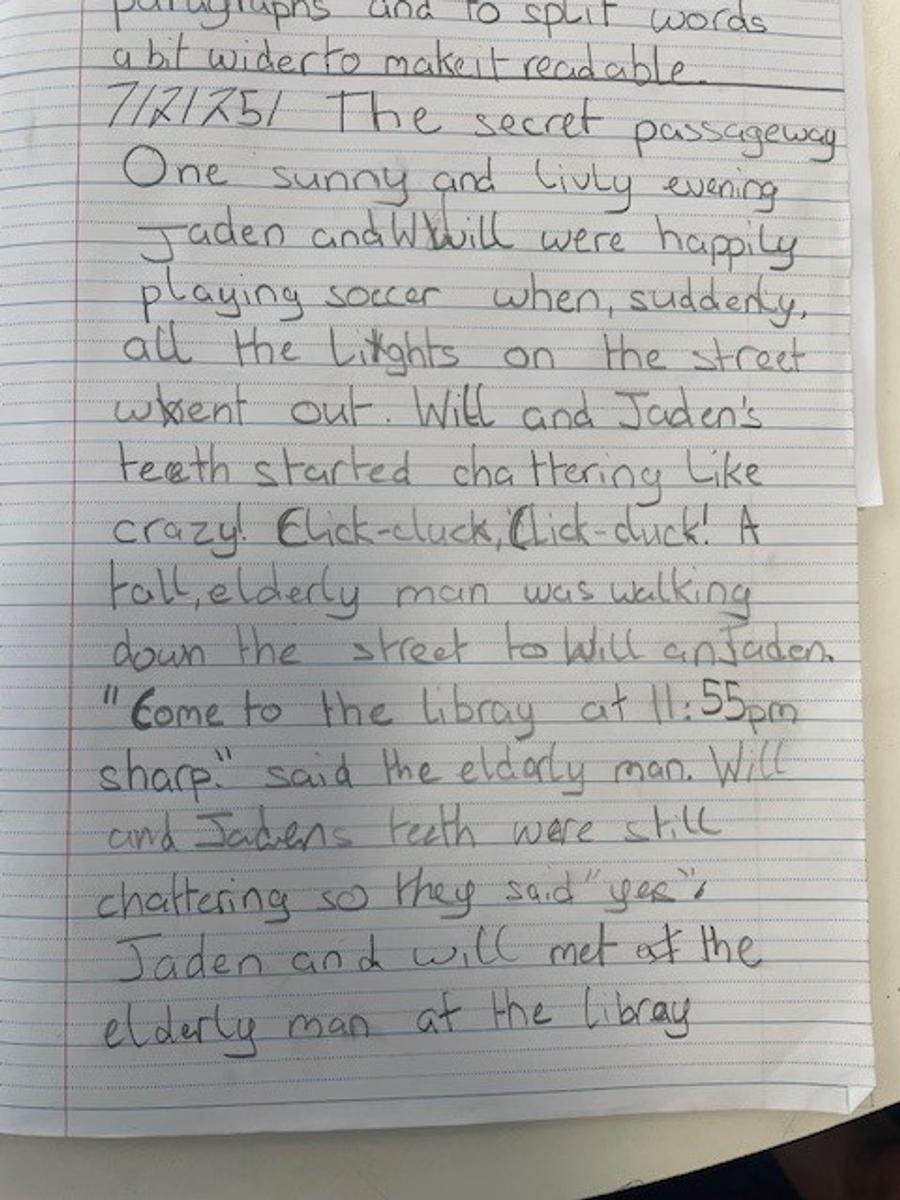 paragraphs and to split words
a bit wider to make it readable.
7/2/25/ The secret passageway
One sunny and livly evening
Jaden and Will were happily
playing soccer when, suddenly,
all the lights on the street
went out. Will and Jaden's
teeth started chattering like
crazy! Click-cluck, Click-cluck! A
tall, elderly man was walking
down the street to Will an Jaden.
"Come to the libray at 11:55pm
sharp." said the eldarly man. Will
and Jadens teeth were still
chattering so they said "yes".
Jaden and will met at the
elderly man at the libray